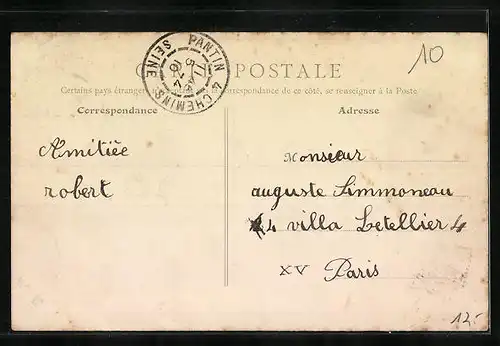 10
CARTE POSTALE
PANTIN 4 CHEMINS SEINE
Certains pays étrangers correspondance de ce côté, se renseigner à la Poste
Correspondance
Adresse
Amitiée
robert
Monsieur
auguste Simmoneau
4 villa Letellier 4
XV Paris
12.-